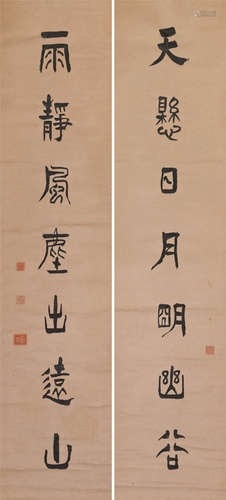 天懸日月明幽谷
雨靜風塵出遠山